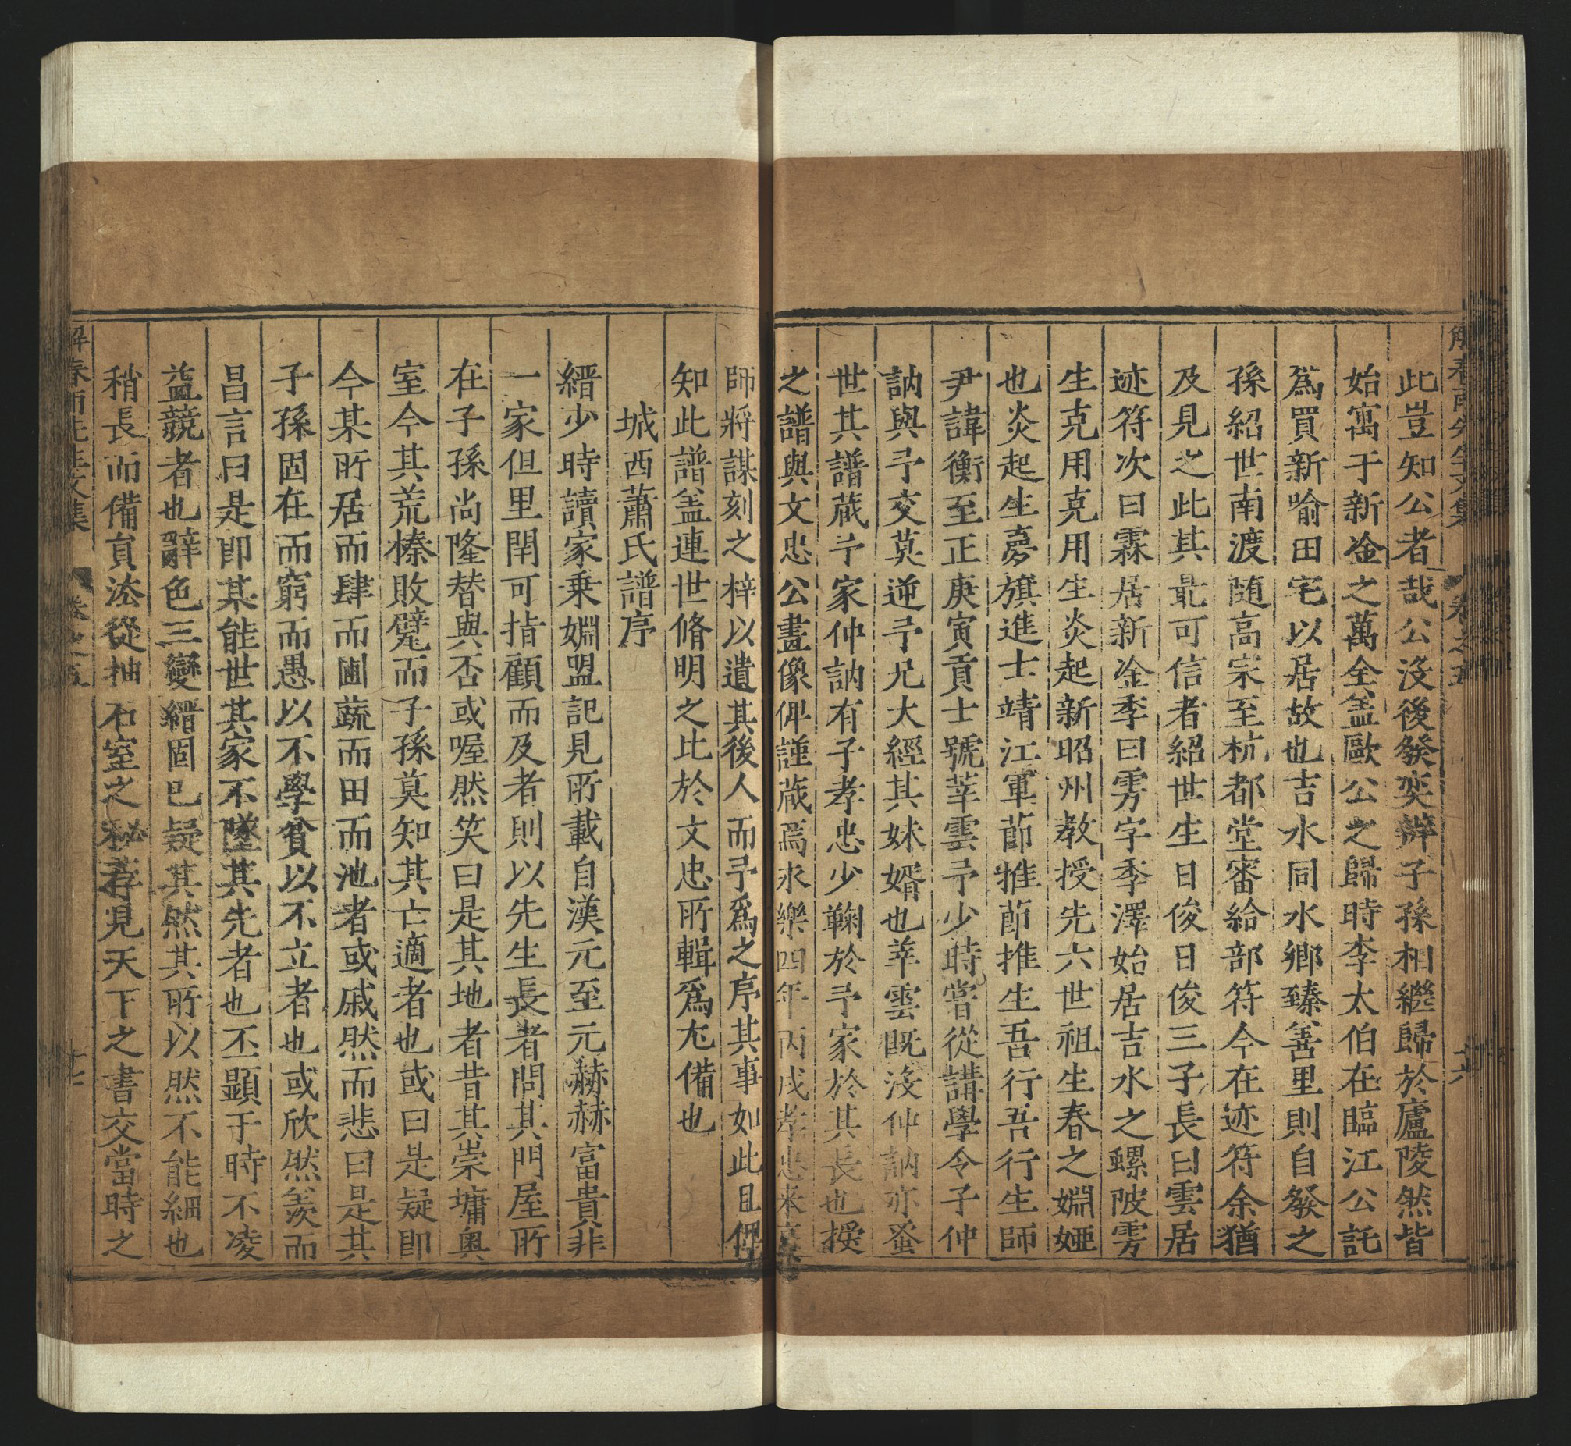 此豈知公者哉公沒後發奕辯子孫相繼歸於廬陵然皆
始寓于新淦之萬全盖歐公之歸時李太伯在臨江公託
爲買新喻田宅以居故也吉水同水鄉臻善里則自發之
孫紹世南渡隨高宋至杭都堂審給部符今在迹符余猶
及見之此其最可信者紹世生日俊日俊三子長曰雲居
迹符次曰霖居新淦季曰雱字季澤始居吉水之螺陂雱
生克用克用生炎起新昭州教授先六世祖生春之婣婭
也炎起生夢旂進士靖江軍莭惟莭推生吾行吾行生師
尹諱衡至正庚寅貢士號莘雲予少時嘗從講學令子仲
訥與予交莫逆予兄大經其妹婿也莘雲既沒仲訥亦蚤
世其譜蔵予家仲訥有子孝忠少鞠於予家於其長也授
之譜與文忠公畫像俾謹蔵焉永樂四年丙戌孝忠來京
師將謀刻之梓以遺其後人而予爲之序其事如此且俾
知此譜盖連世脩明之比於文忠所輯爲尤備也
城西蕭氏譜序
縉少時讀家乗婣盟記見所載自漢元至元赫赫富貴非
一家但里閈可指顧而及者則以先生長者問其門屋所
在子孫尚隆替與否或喔然笑曰是其地者昔其崇墉奥
室今其荒榛敗甓而子孫莫知其亡適者也或曰是疑即
今某所居而肆而圃蔬而田而池者或戚然而悲曰是其
子孫固在而窮而愚以不學貧以不立者也或欣然羨而
昌言曰是即某能世其家不墜其先者也丕顯于時不凌
益競者也辭色三變縉固已疑其然其所以然不能細也
稍長而備員法從抽石室之秘荐見天下之書交當時之
解春雨先生文集 卷之五